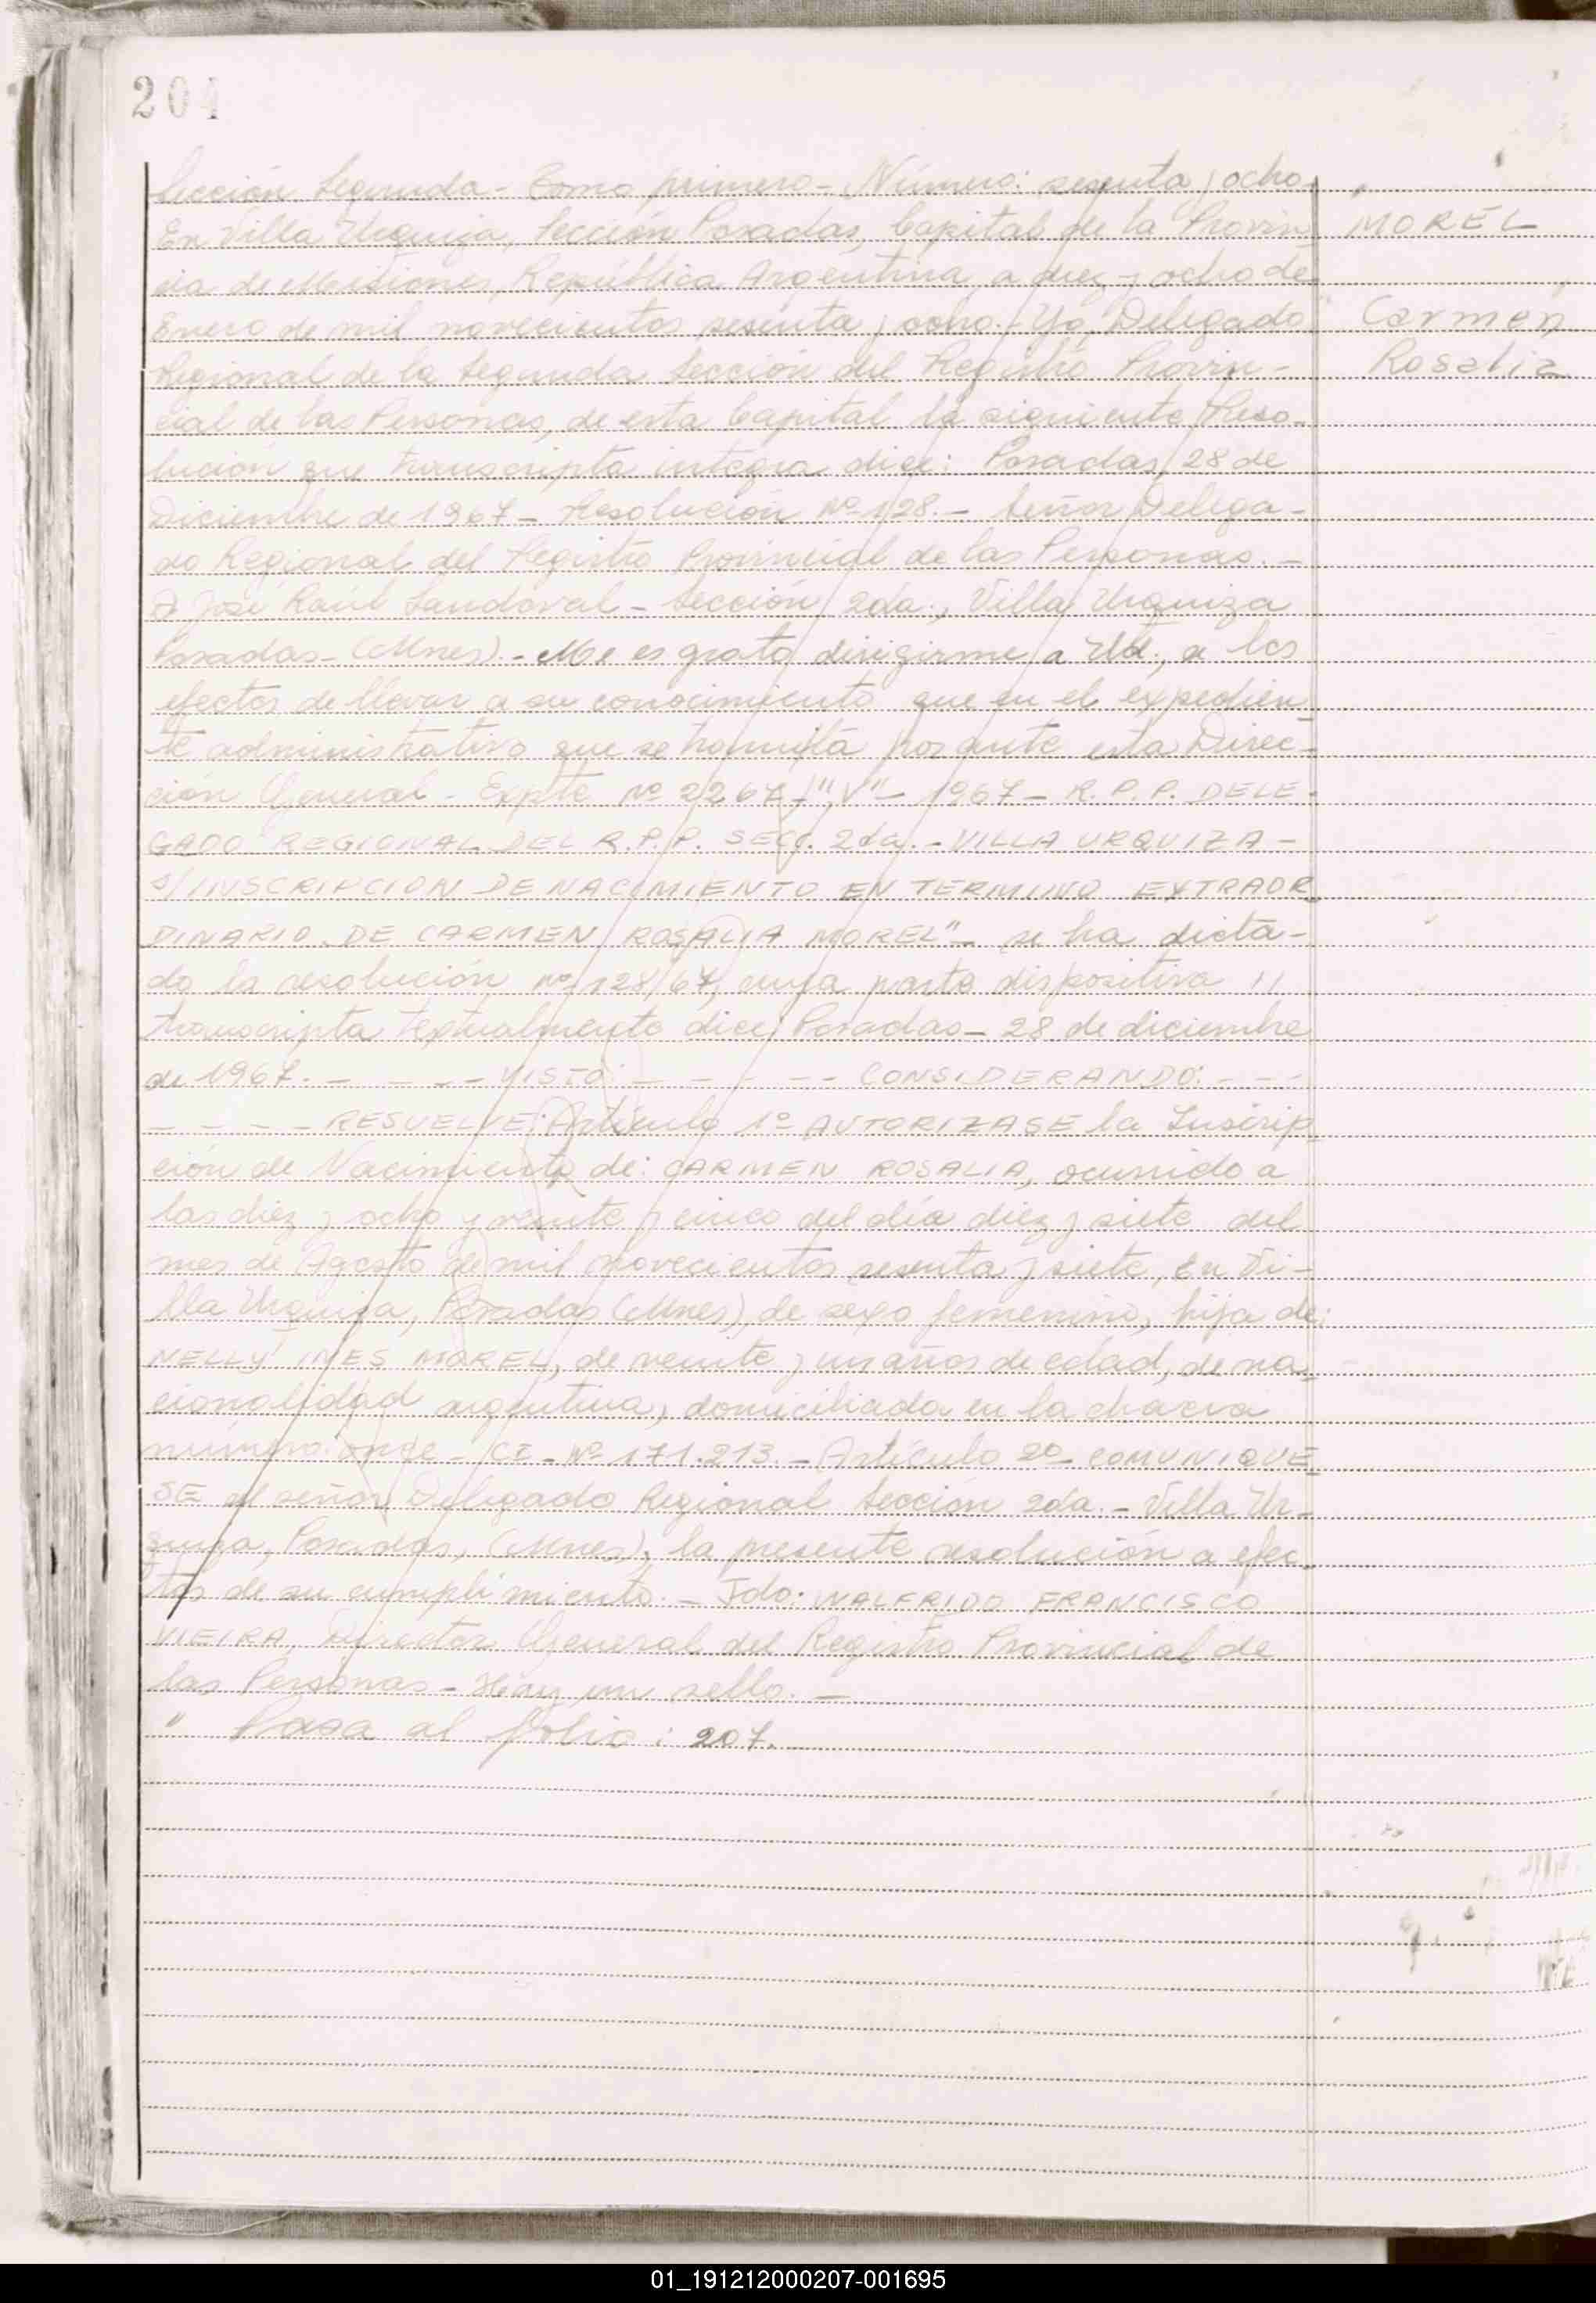 204
Sección Segunda - Tomo primero - Número: sesenta y ocho
En Villa Urquiza, Sección Posadas, Capital de la Provin
MOREL
cia de Misiones, República Argentina, a diez y ocho de
Enero de mil novecientos sesenta y ocho.- Yo, Delegado
Carmen
Regional de la Segunda Sección del Registro Provin-
Rosalia
cial de las Personas, de esta Capital la siguiente Reso-
lución que transcripta integra dice: Posadas, 28 de
Diciembre de 1967 - Resolución Nº 128.- Señor Delega-
do Regional del Registro Provincial de las Personas.-
D José Raúl Sandoval - Sección 2da., Villa Urquiza
Posadas - (Mnes) - Me es grato dirigirme a Ud., a los
efectos de llevar a su conocimiento que en el expedien
te administrativo que se tramita por ante esta Direc-
ción General - Expte Nº 2267-"V"- 1967 - R.P.P. DELE-
GADO REGIONAL DEL R.P.P. SECC. 2da. - VILLA URQUIZA -
S/INSCRIPCION DE NACIMIENTO EN TERMINO EXTRAOR
DINARIO DE CARMEN ROSALIA MOREL" - se ha dicta-
do la resolución Nº 128/67, cuya parte dispositiva //
transcripta textualmente dice: Posadas - 28 de diciembre
de 1967. - - - - VISTO: - - - - - CONSIDERANDO: - - -
- - - - RESUELVE: Artículo 1º AUTORIZASE la Inscrip
ción de Nacimiento de: CARMEN ROSALIA, ocurrido a
las diez y ocho y veinte y cinco del día diez y siete del
mes de Agosto de mil novecientos sesenta y siete, En Vi-
lla Urquiza, Posadas (Mnes), de sexo femenino, hija de:
NELLY INES MOREL, de veinte y un años de edad, de na-
cionalidad argentina, domiciliada en la chacra
número: once - CI - Nº 171.213. - Artículo 2º - COMUNIQUE
SE al señor Delegado Regional Sección 2da. - Villa Ur-
quiza, Posadas, (Mnes), la presente resolución a efec
tos de su cumplimiento. - Fdo: WALFRIDO FRANCISCO
VIEIRA, Director General del Registro Provincial de
las Personas - Hay un sello. -
" Pasa al folio: 207.
01_191212000207-001695